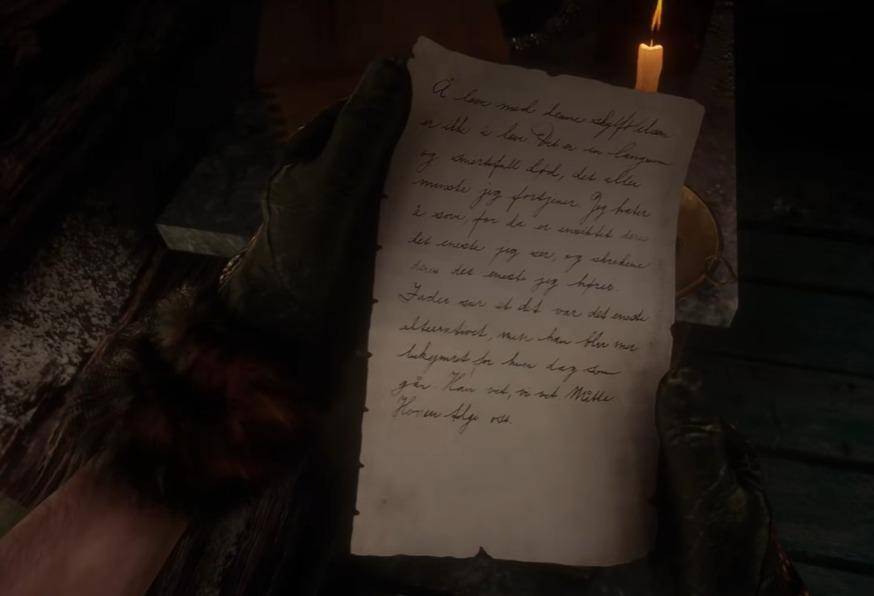 Å leve med denne skyldfølelsen
er ikke å leve. Det er en langsom
og smertefull død, det aller
minste jeg fortjener. Jeg hater
å sove, for da er ansiktet deres
det eneste jeg ser, og skrikene
deres det eneste jeg hører.
Fader sier at det var det eneste
alternativet, men han blir mer
bekymret for hver dag som
går. Han vet, vi vet. Måtte
Herren tilgi oss.